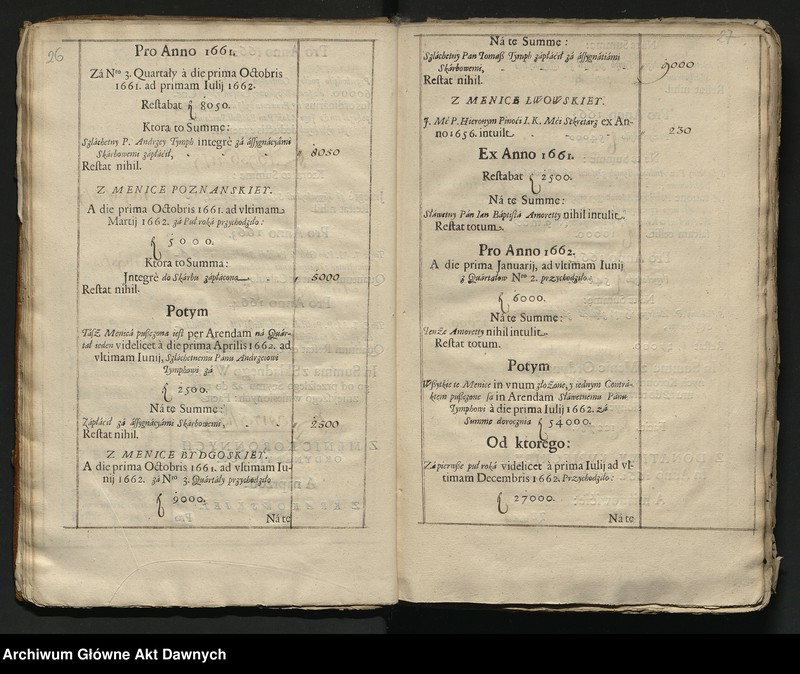 26
Pro Anno 1661.
Zá Nro 3. Quartały à die prima Octobris
1661. ad primam Iulij 1662.
Restabat ƒ 8050.
Ktora to Summe:
Szláchetny P. Andrzey Tymph integrè zá ássygnácyámi
Skárbowemi zápłácił, 8050
Restat nihil.
Z MENICE POZNANSKIEY.
A die prima Octobris 1661. ad vltimam
Martij 1662. zá Puł roká przychodziło:
ƒ 5000.
Ktora to Summa:
Jntegrè do Skárbu zápłacona 5000
Restat nihil.
Potym
Táż Menicá puszczona iest per Arendam ná Quár-
tał ieden videlicet à die prima Aprilis 1662. ad
vltimam Iunij, Szláchetnemu Pánu Andrzeiowi
Tymphowi zá
ƒ 2500.
Ná te Summe:
Zápłácił zá ássygnácyámi Skárbowemi, 2500
Restat nihil.
Z MENICE BYDGOSKIEY.
A die prima Octobris 1661. ad vltimam Iu-
nij 1662. zá Nro 3. Quártały przychodziło
ƒ 9000.
Ná te
27
Ná te Summe:
Szláchetny Pan Tomasz Tymph zápłácił zá ássygnátiámi
Skárbowemi, 9000
Restat nihil.
Z MENICE LWOWSKIEY.
J. Mć P. Hieronym Pinoći I. K. Mći Sekretarz ex An-
no 1656. intulit 230
Ex Anno 1661.
Restabat ƒ 2500.
Ná te Summe:
Sláwetny Pán Ian Báptistá Amoretty nihil intulit.
Restat totum.
Pro Anno 1662.
A die prima Januarij, ad vltimam Iunij
z Quártałow Nro 2. przychodziło:
ƒ 6000.
Ná te Summe:
Tenże Amoretty nihil intulit.
Restat totum.
Potym
Wszytkie te Menice in vnum złożone, y iednym Contrá-
ktem puszczone są in Arendam Sláwetnemu Pánu
Tymphowi à die prima Iulij 1662. zá
Summe doroczniá ƒ 54000.
Od ktorego:
Zá pierwsze puł roká videlicet à prima Iulij ad vl-
timam Decembris 1662. Przychodziło:
ƒ 27000.
Ná te
Archiwum Główne Akt Dawnych